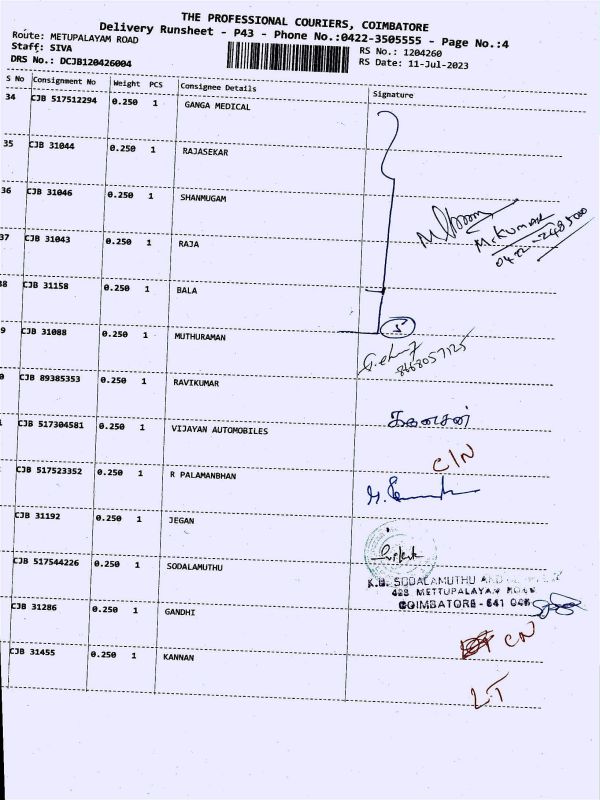 THE PROFESSIONAL COURIERS, COIMBATORE
Delivery Runsheet - P43 - Phone No.:0422-3505555 - Page No.:4
Route: METUPALAYAM ROAD
Staff: SIVA
DRS No.: DCJB120426004
RS No.: 1204260
RS Date: 11-Jul-2023
S No Consignment No Weight PCS Consignee Details Signature
34 CJB 517512294 0.250 1 GANGA MEDICAL
35 CJB 31044 0.250 1 RAJASEKAR
36 CJB 31046 0.250 1 SHANMUGAM
M.Kumar
0422-2485000
37 CJB 31043 0.250 1 RAJA
38 CJB 31158 0.250 1 BALA
5
9 CJB 31088 0.250 1 MUTHURAMAN
8668057125
0 CJB 89385353 0.250 1 RAVIKUMAR
கணேசன்
CJB 517304581 0.250 1 VIJAYAN AUTOMOBILES
C/N
CJB 517523352 0.250 1 R PALAMANBHAN
CJB 31192 0.250 1 JEGAN
CJB 517544226 0.250 1 SODALAMUTHU
K.B. SODALAMUTHU AND
428 METTUPALAYAM ROAD
COIMBATORE - 641 043
CJB 31286 0.250 1 GANDHI
CN
CJB 31455 0.250 1 KANNAN
LT